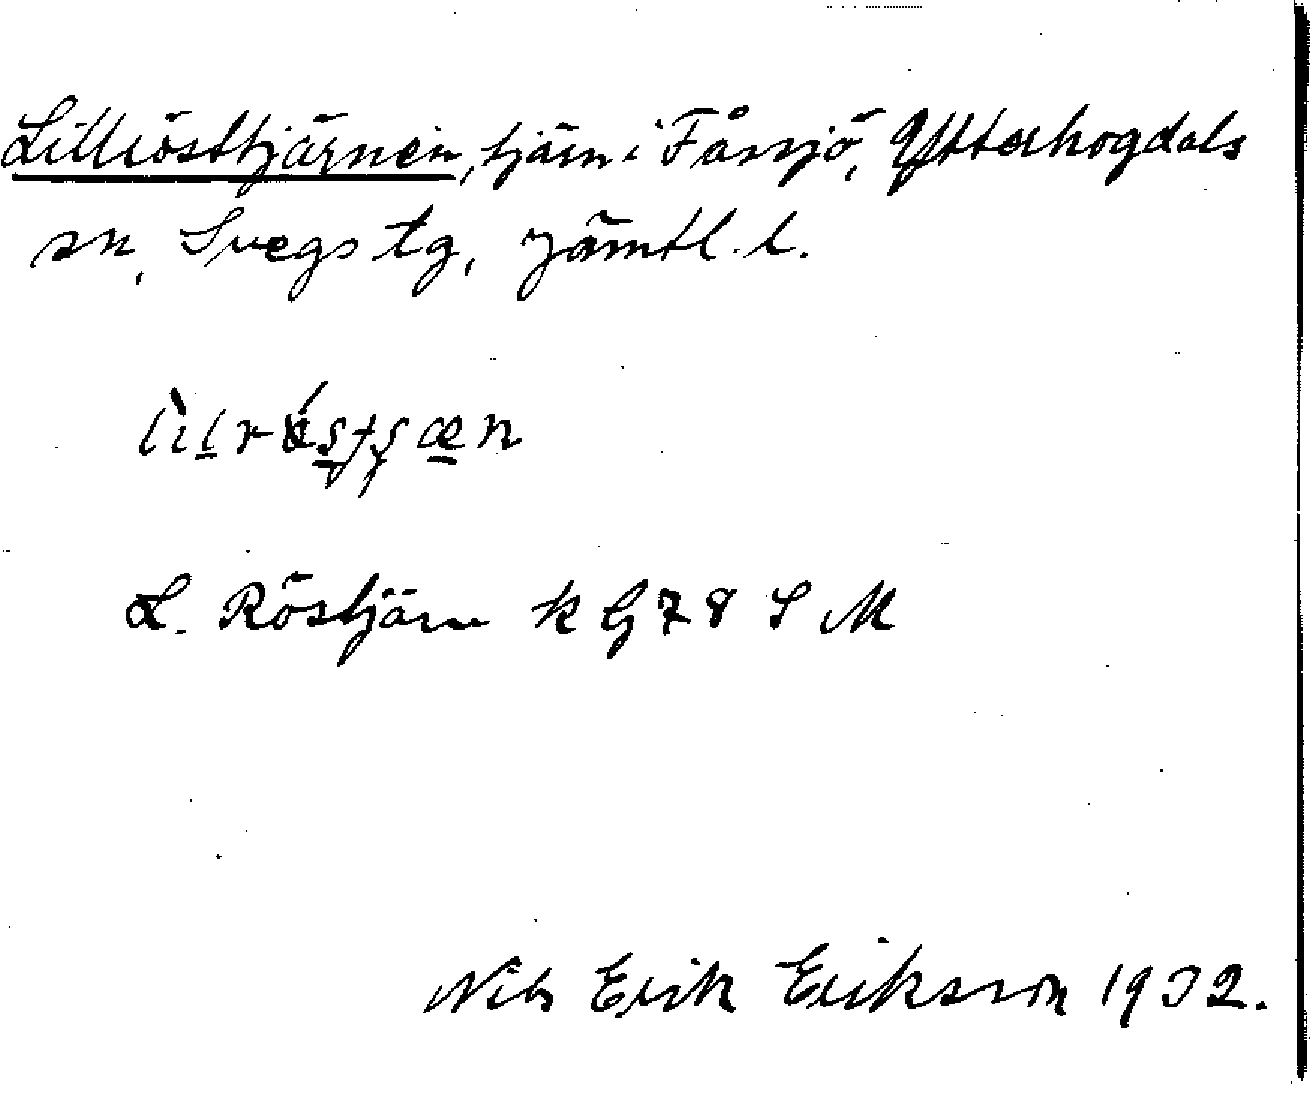 Lillrösttjärnen, tjärn i Fåssjö, Ytterhogdals
sn, Svegs tg, Jämtl. l.
L. Röstjärn k G 78 S M
Nils Erik Eriksson 1932.